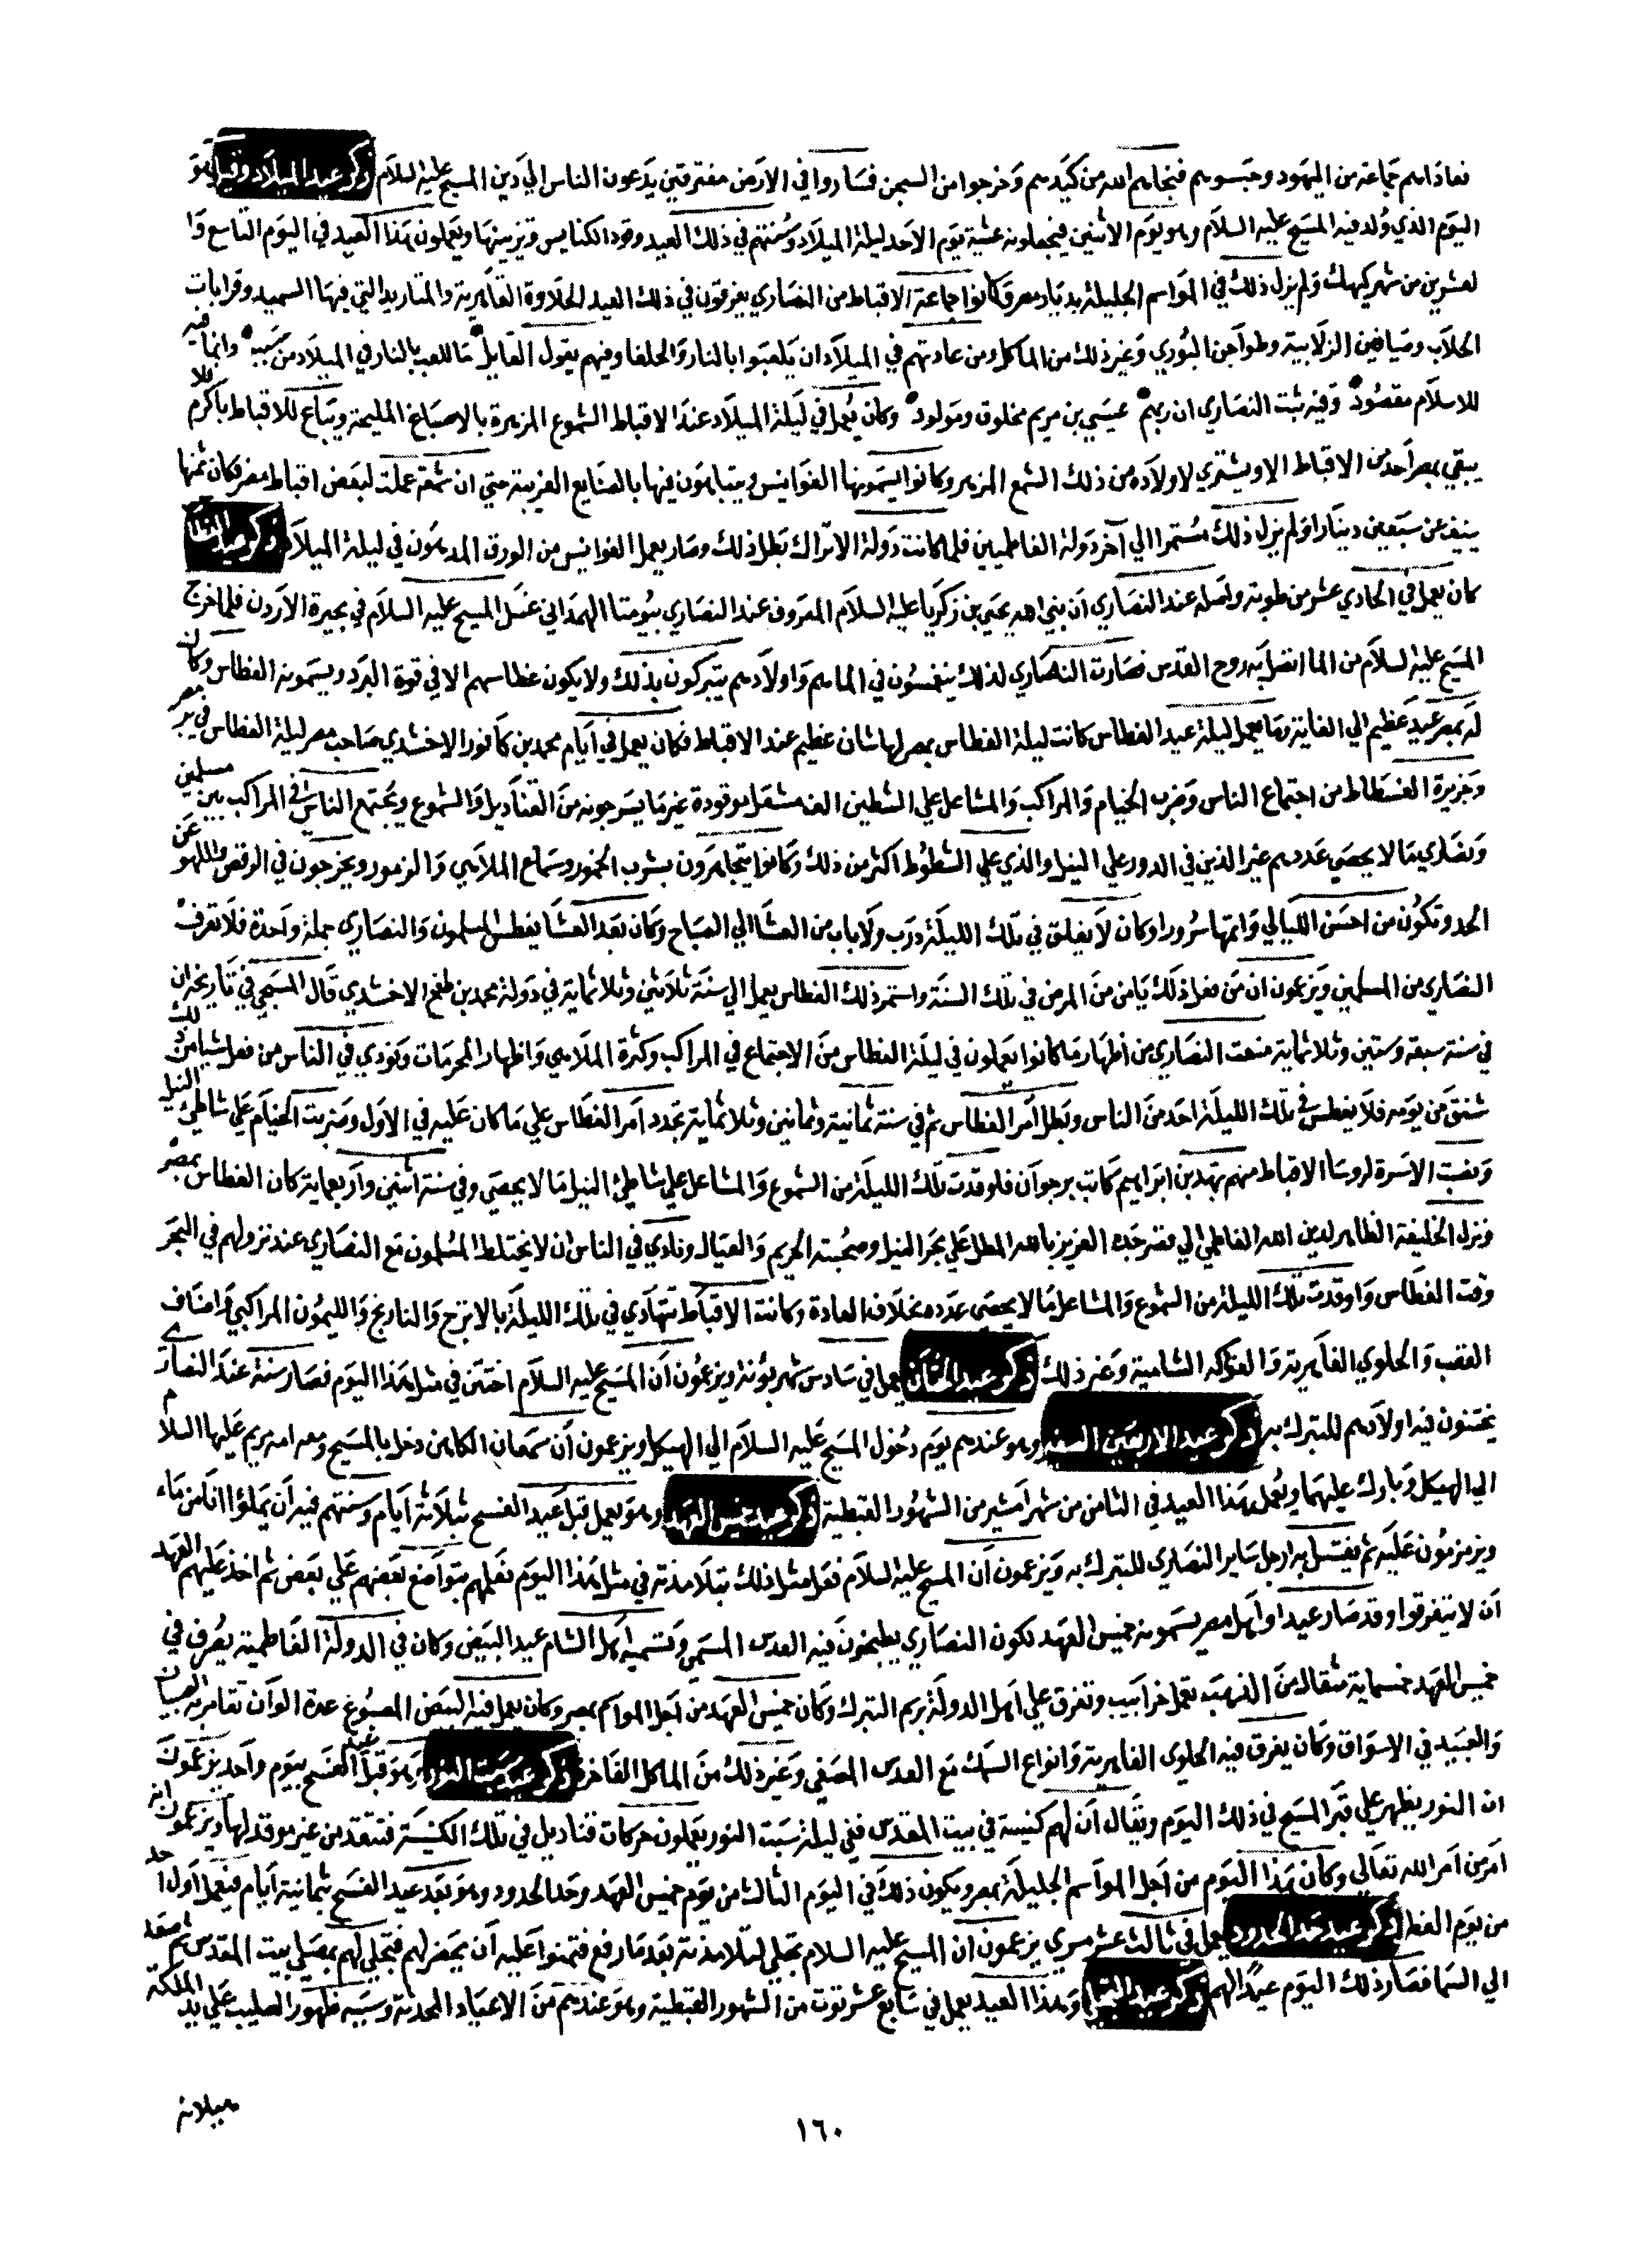 فعاداهم جماعة من اليهود وحبسوهم فنجاهم الله من كيدهم وخرجوا من السجن فساروا في الارض مفترقين يدعون الناس الي دين المسيح عليه السلام ذكر عيد الميلاد وقيل هو
اليوم الذي ولد فيه المسيح عليه السلام وهو يوم الاثنين فيجعلونه عشية يوم الاحد ليلة الميلاد وسنتهم في ذلك العيد وقود الكنايس وتزيينها ويعملون هذا العيد في اليوم التاسع وا
لعشرين من شهر كيهك ولم يزل ذلك في المواسم الجليلة بديار مصر وكانوا جماعة الاقباط من النصاري يفرقون في ذلك العيد الحلاوة القاهرية والمتاريد التي فيها السميد وقرابات
الجلاب وصيافين الزلابية وطواجن البوري وغير ذلك من الماكل ومن عادتهم في الميلاد ان يلعبوا بالنار والحلفا وفيهم يقول القايل ما اللعب بالنار في الميلاد من سببه وانما فيه
للاسلام مقصود وفيه ثبت النصاري ان ربهم عيسي بن مريم مخلوق ومولود وكان يعمل في ليلة الميلاد عند الاقباط الشموع المزهرة بالاصباغ المليحة ويباع للاقباط باكرم فلا
يبقي بمصر احد من الاقباط الا ويشتري لاولاده من ذلك الشمع المزهر وكانوا يسمونها الفوانيس ويتباهون فيها بالصنايع الغريبة حتي ان شمعة عملت لبعض اقباط مصر فكان ثمنها
ينيف عن سبعين دينارا ولم يزل ذلك مستمرا الي آخر دولة الفاطميين فلما كانت دولة الاتراك بطل ذلك وصار يعمل الفوانيس من الورق المدهون في ليلة الميلاد ذكر عيد الغطاس
كان يعمل في الحادي عشر من طوبة واصله عند النصاري ان بني الله يحيي بن زكريا عليه السلام المعروف عند النصاري بيوحنا المعمداني غسل المسيح عليه السلام في بحيرة الاردن فلما خرج
المسيح عليه السلام من الما اتصل به روح القدس فصارت النصاري لذلك ينغمسون في الما هم واولادهم يتبركون بذلك ولا يكون غطاسهم الا في قوة البرد ويسمونه الغطاس وكان
له بمصر عيد عظيم الي الغاية وما يعمل ليلة عيد الغطاس كانت ليلة الغطاس بمصر لها شان عظيم عند الاقباط فكان يعمل في ايام محمد بن كافور الاخشدي صاحب مصر ليلة الغطاس في بر مصر
وجزيرة الفسطاط من اجتماع الناس وضرب الخيام والمراكب والمشاعل علي الشطين الف مشعل موقودة غير ما يسرجونه من القناديل والشموع ويجتمع الناس في المراكب بين مسلمين
ونصاري ما لا يحصي عددهم غير الذين في الدور علي النيل والذي علي الشطوط اكثر من ذلك وكانوا يتجاهرون بشرب الخمور وسماع الملاهي والزمور ويخرجون في الرقص واللهو عن
الحد وتكون من احسن الليالي واتمها سرورا وكان لا يغلق في تلك الليلة درب ولا باب من العشا الي الصباح وكان بعد العشا يغطس المسلمون والنصاري جملة واحدة فلا تعرف
النصاري من المسلمين ويزعمون ان من فعل ذلك يامن من المرض في تلك السنة واستمر ذلك الغطاس يعمل الي سنة ثلاثين وثلاثماية في دولة محمد بن طغج الاخشدي قال المسبحي في تاريخه ان
في سنة سبعة وستين وثلاثماية منعت النصاري من اظهار ما كانوا يعملون في ليلة الغطاس من الاجتماع في المراكب وكثرة الملاهي واظهار المحرمات ونودي في الناس من فعل شيا من ذلك
شنق من يومه فلا يغطس في تلك الليلة احد من الناس وبطل امر الغطاس ثم في سنة ثمانية وثمانين وثلاثماية تجدد امر الغطاس علي ما كان عليه في الاول وضربت الخيام علي شاطي النيل
ونصبت الاسرة لروسا الاقباط منهم فهد بن ابراهيم كاتب برجوان فاوقدت تلك الليلة من الشموع والمشاعل علي شاطي النيل ما لا يحصي وفي سنة اثنين واربعماية كان الغطاس بمصر
ونزل الخليفة الظاهر لدين الله الفاطمي الي قصر جده العزيز بالله المطل علي بحر النيل وصحبته الحريم والعيال ونادي في الناس ان لا يختلط المسلمون مع النصاري عند نزولهم في البحر
وقت الغطاس واوقدت تلك الليلة من الشموع والمشاعل ما لا يحصي عدده بخلاف العادة وكانت الاقباط تتهادي في تلك الليلة بالاترج والنارنج والليمون المراكبي واصناف
القصب والحلوي القاهرية والفواكه الشامية وغير ذلك ذكر عيد الختان يعمل في سادس شهر بؤنة ويزعمون ان المسيح عليه السلام اختتن في مثل هذا اليوم فصار سنة عند النصاري
يختنون فيه اولادهم للتبرك به ذكر عيد الاربعين السنة وهو عندهم يوم دخول المسيح عليه السلام الي الهيكل ويزعمون ان سمعان الكاهن دخل بالمسيح ومعه امه مريم عليها السلام
الي الهيكل وبارك عليهما ويعمل هذا العيد في الثامن من شهر امشير من الشهور القبطية ذكر عيد خميس العهد وهو يعمل قبل عيد الفسح بثلاثة ايام وسنتهم فيه ان يملؤا اناء من ماء
ويزمزمون عليه ثم يغتسل به ارجل ساير النصاري للتبرك به ويزعمون ان المسيح عليه السلام فعل مثل ذلك بتلامذته في مثل هذا اليوم يعلمهم بتواضع بعضهم علي بعض ثم اخذ عليهم العهد
ان لا يتفرقوا وقد صار عيدا واهل مصر يسمونه خميس العهد لكون النصاري يطبخون فيه العدس المسمي وتسميه اهل الشام عيد البيض وكان في الدولة الفاطمية يعرف في
خميس العهد خمسماية مثقال من الذهب تعمل خراريب وتفرق علي اهل الدولة برسم التبرك وكان خميس العهد من اجل المواسم بمصر وكان يعمل فيه البيض المصبوغ عدة الوان تقامر به الصبيان
والعبيد في الاسواق وكان يفرق فيه الحلوي القاهرية وانواع السمك مع العدس المصفي وغير ذلك من الماكل الفاخر ذكر عيد سبت النور وهو قبل عيد الفسح بيوم واحد يزعمون
ان النور يظهر علي قبر المسيح في ذلك اليوم ويقال ان لهم كنيسة في بيت المقدس ففي ليلة سبت النور يعملون حركات قناديل في تلك الكنيسة فتتقد من غير موقد لها ويزعمون انه
امر من امر الله تعالي وكان هذا اليوم من اجل المواسم الجليلة بمصر ويكون ذلك في اليوم الثالث من يوم خميس العهد وحد الحدود وهو بعد عيد الفسح بثمانية ايام فيعمل اول احد
من يوم الفطر ذكر عيد حد الحدود يعمل في ثالث عشر مسري يزعمون ان المسيح عليه السلام تجلي لتلامذته بعد ما رفع فتمنوا عليه ان يحضر لهم فتجلي لهم بمصلي بيت المقدس ثم صعد
الي السما فصار ذلك اليوم عيدا لهم ذكر عيد التجلي وهذا العيد يعمل في سابع عشر توت من الشهور القبطية وهو عندهم من الاعياد المحدثة وسببه ظهور الصليب علي يد الملكة
هيلانه
١٦٠